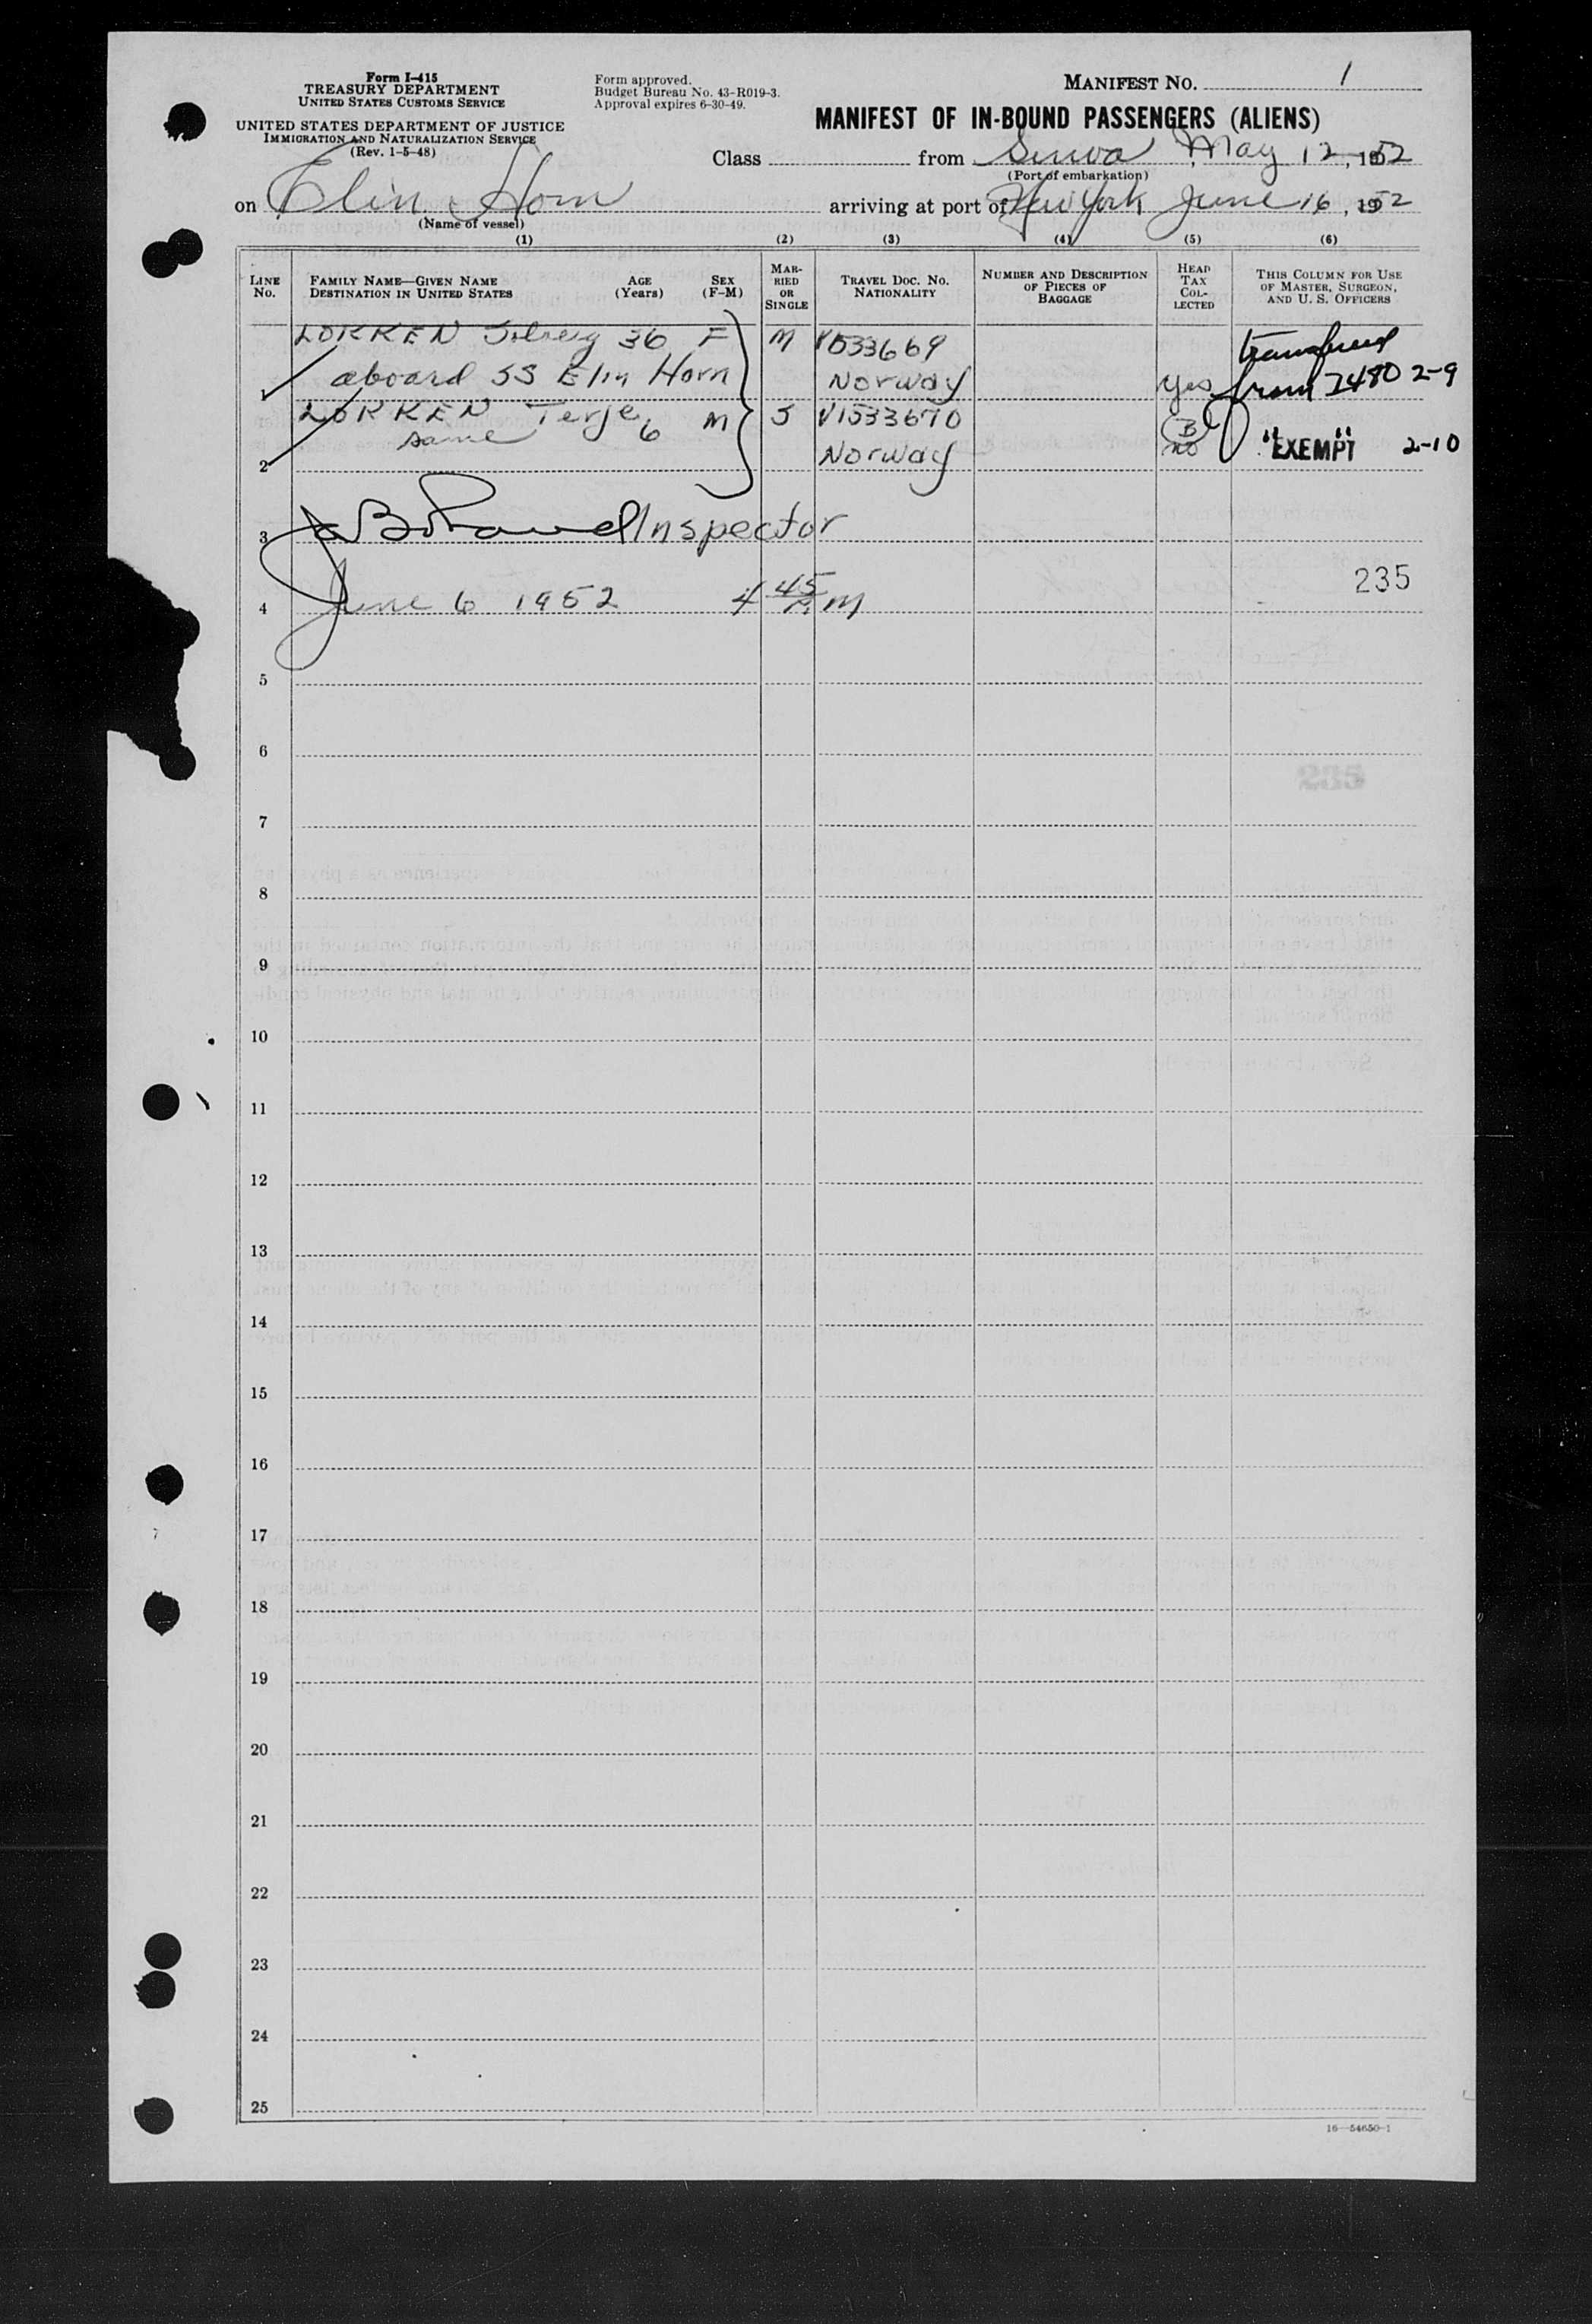 Form I-415
TREASURY DEPARTMENT
UNITED STATES CUSTOMS SERVICE
UNITED STATES DEPARTMENT OF JUSTICE
IMMIGRATION AND NATURALIZATION SERVICE
(Rev. 1-5-48)
Form approved.
Budget Bureau No. 43-R019-3.
Approval expires 6-30-49.
MANIFEST NO. 1
MANIFEST OF IN-BOUND PASSENGERS (ALIENS)
Class from May 12, 1952
(Port of embarkation)
on Elin Horn arriving at port of New York June 16, 1952
(Name of vessel)
(1) (2) (3) (4) (5) (6)
LINE No. FAMILY NAME—GIVEN NAME DESTINATION IN UNITED STATES AGE (Years) SEX (F-M) MARRIED OR SINGLE TRAVEL DOC. NO. NATIONALITY NUMBER AND DESCRIPTION OF PIECES OF BAGGAGE HEAD TAX COLLECTED THIS COLUMN FOR USE OF MASTER, SURGEON, AND U. S. OFFICERS
LOKKEN Solveig 36 F M V1533669 transferred
1 aboard SS Elin Horn Norway yes from I480 2-9
LOKKEN Terje 6 M S V1533670 B
2 same Norway no "EXEMPT" 2-10
3 Inspector
235
4 June 6 1952 4 45 PM
5
6
235
7
8
9
10
11
12
13
14
15
16
17
18
19
20
21
22
23
24
25
16—54650-1